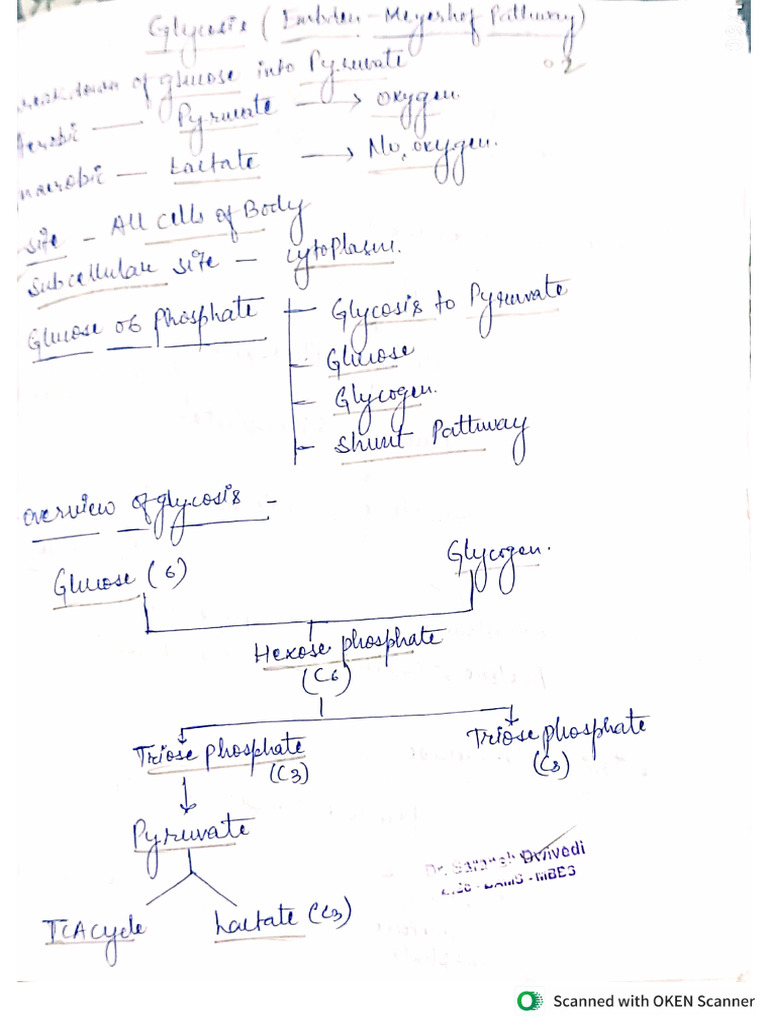 Glycosis (Embden-Meyerhof Pathway)
02
of glucose into Pyruvate
Aerobic — Pyruvate → oxygen.
naerobic — Lactate → No, oxygen.
Site - All cells of Body
Subcellular site - Cytoplasm.
Glucose 06 phosphate
Glycosis to Pyruvate
Glucose
Glycogen.
Shunt Pathway
overview of glycosis -
Glucose (6)
Glycogen.
Hexose phosphate
(C6)
Triose phosphate
(C3)
Triose phosphate
(C3)
Pyruvate
TCA cycle
Lactate (C3)
Dr. Saransh Dvivedi
BAMS - MBES
Scanned with OKEN Scanner